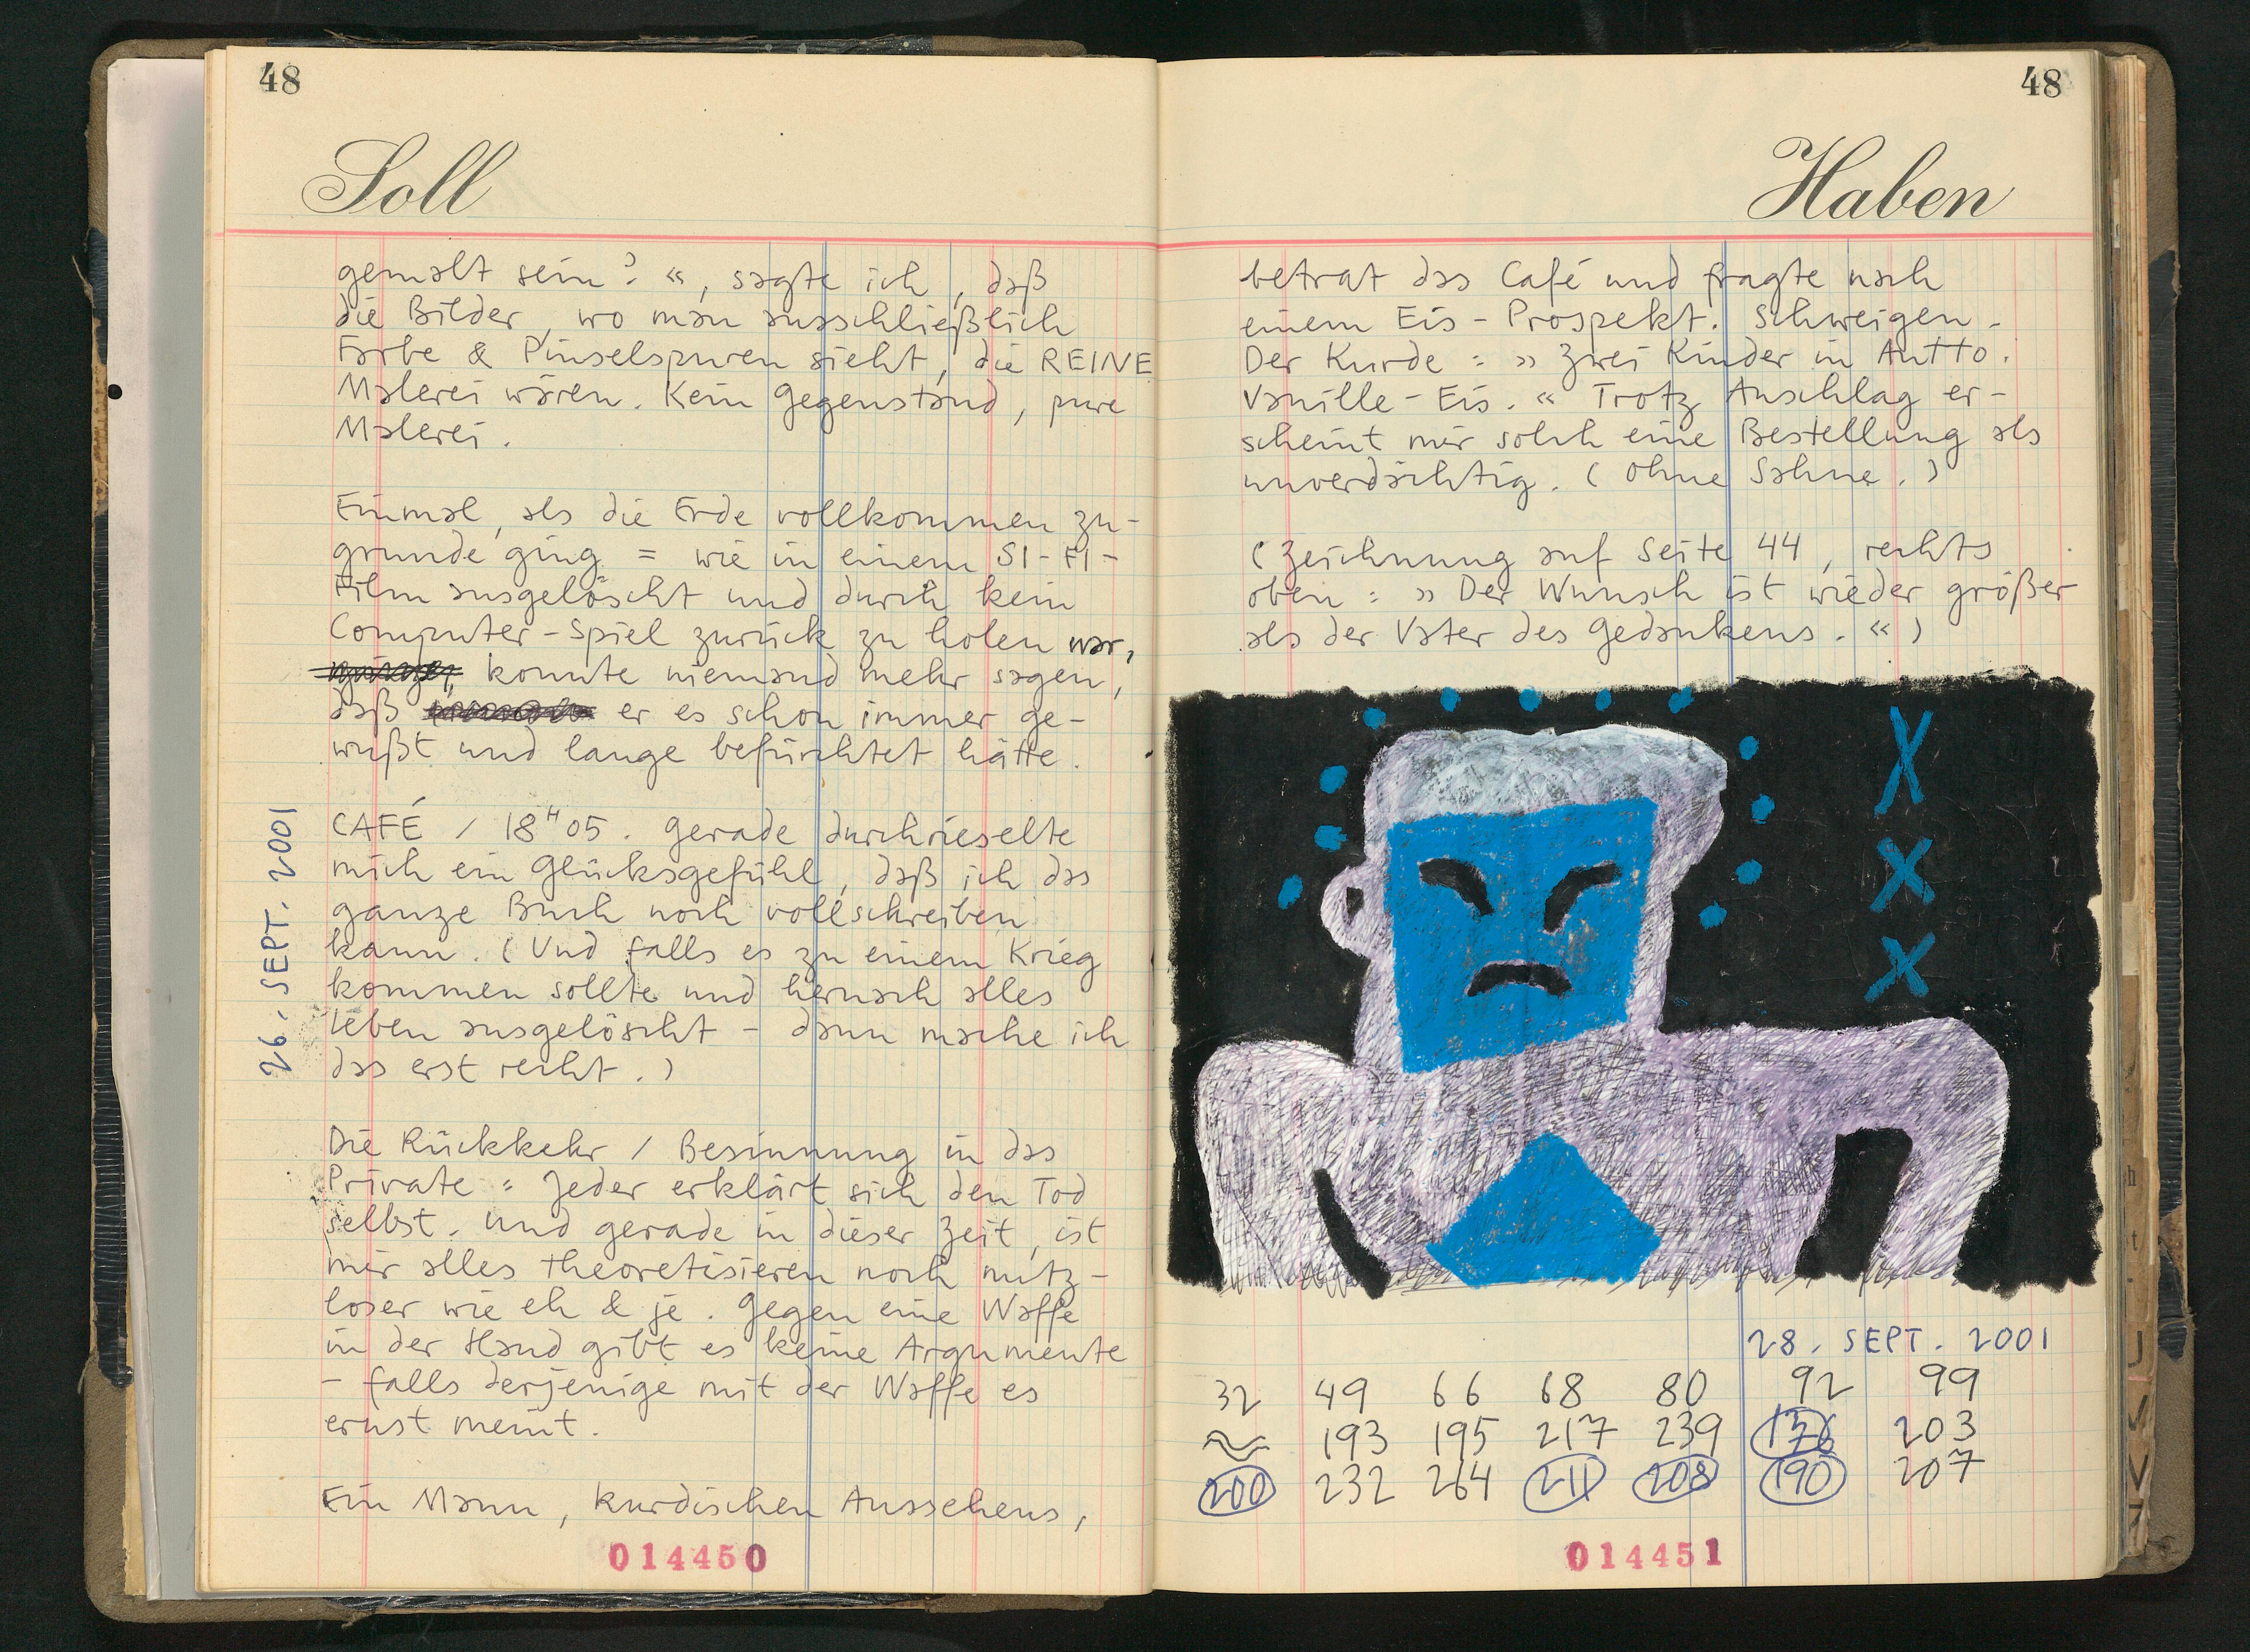 48
Soll
gemalt sein? «, sagte ich, daß
die Bilder, wo man ausschließlich
Farbe & Pinselspuren sieht, die REINE
Malerei wären. Kein Gegenstand, pure
Malerei.
Einmal, als die Erde vollkommen zu-
grunde ging = wie in einem SI-FI-
Film ausgelöscht und durch kein
Computer-Spiel zurück zu holen war,
konnte niemand mehr sagen,
daß er es schon immer ge-
wußt und lange befürchtet hätte.
26. SEPT. 2001
CAFÉ / 18H05. Gerade durchrieselte
mich ein Glücksgefühl, daß ich das
ganze Buch noch vollschreiben
kann. (Und falls es zu einem Krieg
kommen sollte und hernach alles
Leben ausgelöscht – dann mache ich
das erst recht.)
Die Rückkehr / Besinnung in das
Private = Jeder erklärt sich den Tod
selbst. Und gerade in dieser Zeit, ist
mir alles theoretisieren noch nutz-
loser wie eh & je. Gegen eine Waffe
in der Hand gibt es keine Argumente
– falls derjenige mit der Waffe es
ernst meint.
Ein Mann, kurdischen Aussehens,
014450
48
Haben
betrat das Café und fragte nach
einem Eis-Prospekt. Schweigen.
Der Kurde: » Zwei Kinder in Autto.
Vanille-Eis. « Trotz Anschlag er-
scheint mir solch eine Bestellung als
unverdächtig. (Ohne Sahne.)
(Zeichnung auf Seite 44, rechts
oben: » Der Wunsch ist wieder größer
als der Vater des Gedankens. «)
X
X
X
28. SEPT. 2001
32 49 66 68 80 92 99
193 195 217 239 203
200 232 264 211 208 190 207
014451